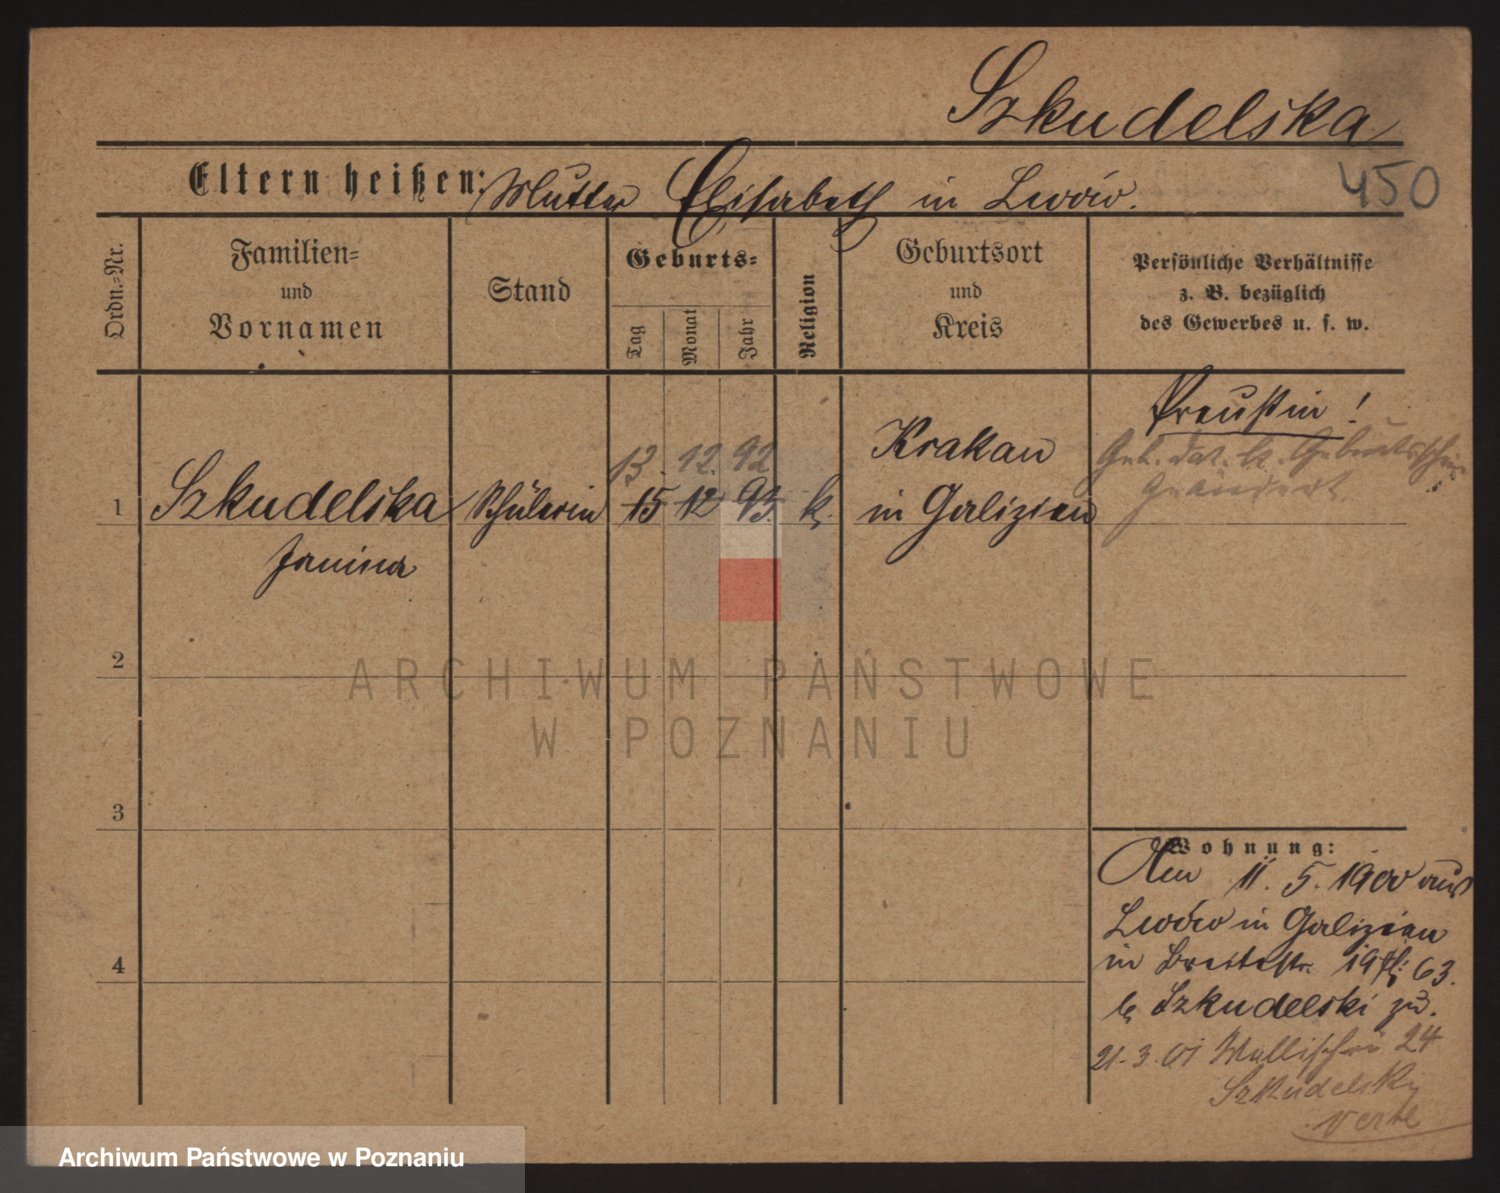 Szkudelska
450
Eltern heißen: Mutter Elisabeth in Lwów.
Ordn.-Nr.
Familien=
und
Vornamen
Stand
Geburts=
Tag
Monat
Jahr
Religion
Geburtsort
und
Kreis
Persönliche Verhältnisse
z. B. bezüglich
des Gewerbes u. s. w.
Preußin!
Geb. dat. lt. Geburtsschein
geändert
13. 12. 92
Krakau
1 Szkudelska Schülerin 15 12 93. k. in Galizien
Janina
2
3
4
Wohnung:
Am 11. 5. 1900 aus
Lwów in Galizien
in Breitestr. 19 63.
b. Szkudelski zu.
21.3.01 Wallischei 24
Szkudelski
verte
ARCHIWUM PAŃSTWOWE
W POZNANIU
Archiwum Państwowe w Poznaniu